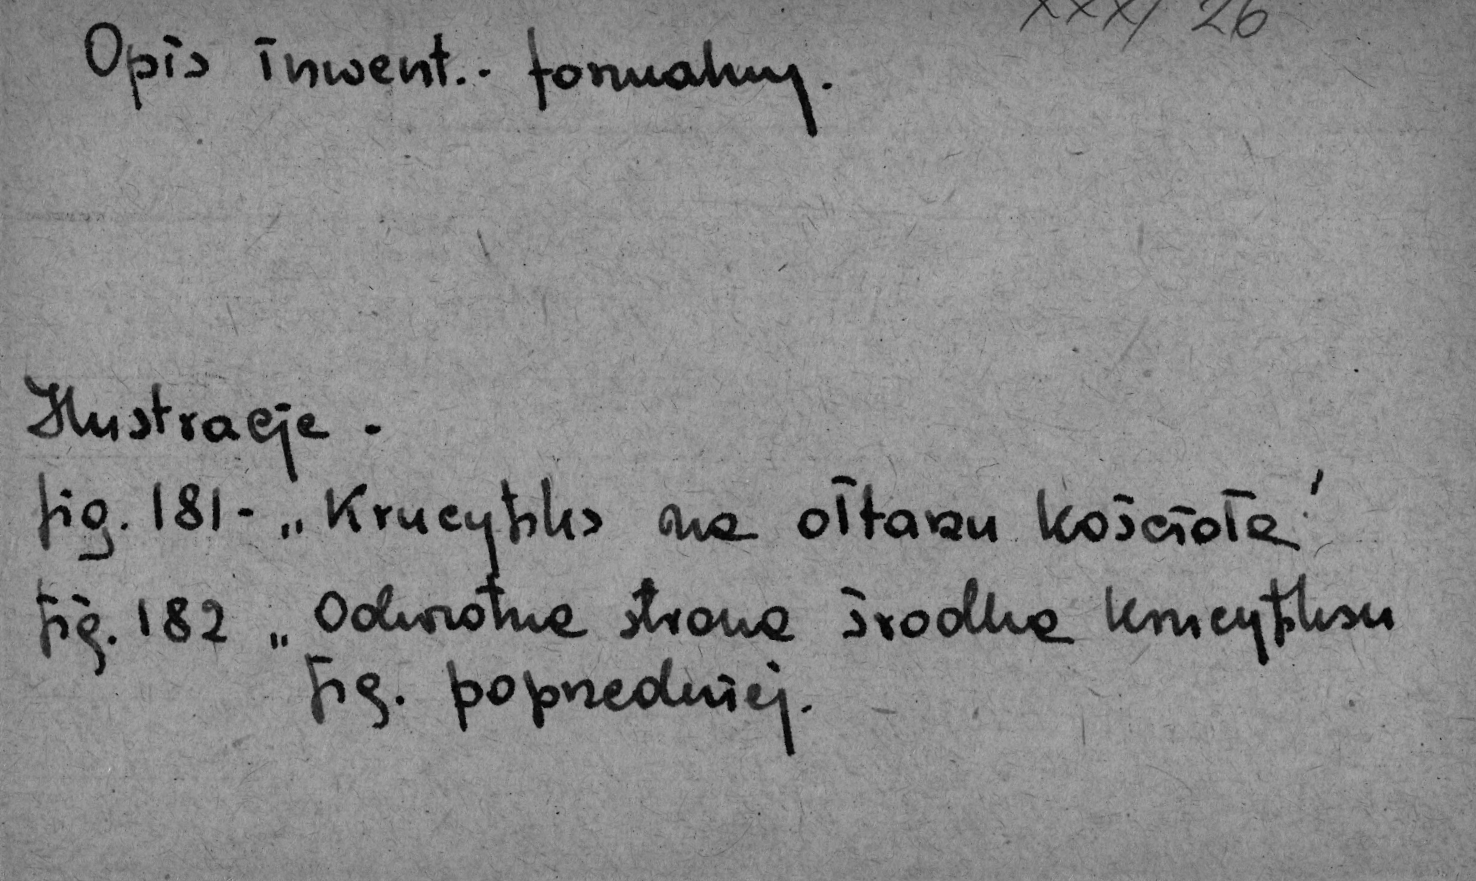 XXX/26
Opis inwent.- formalny.
Ilustracje -
fig. 181 - „Krucyfiks na ołtarzu kościoła"
fig. 182 „Odwrotna strona środka krucyfiksu
fig. poprzedniej.